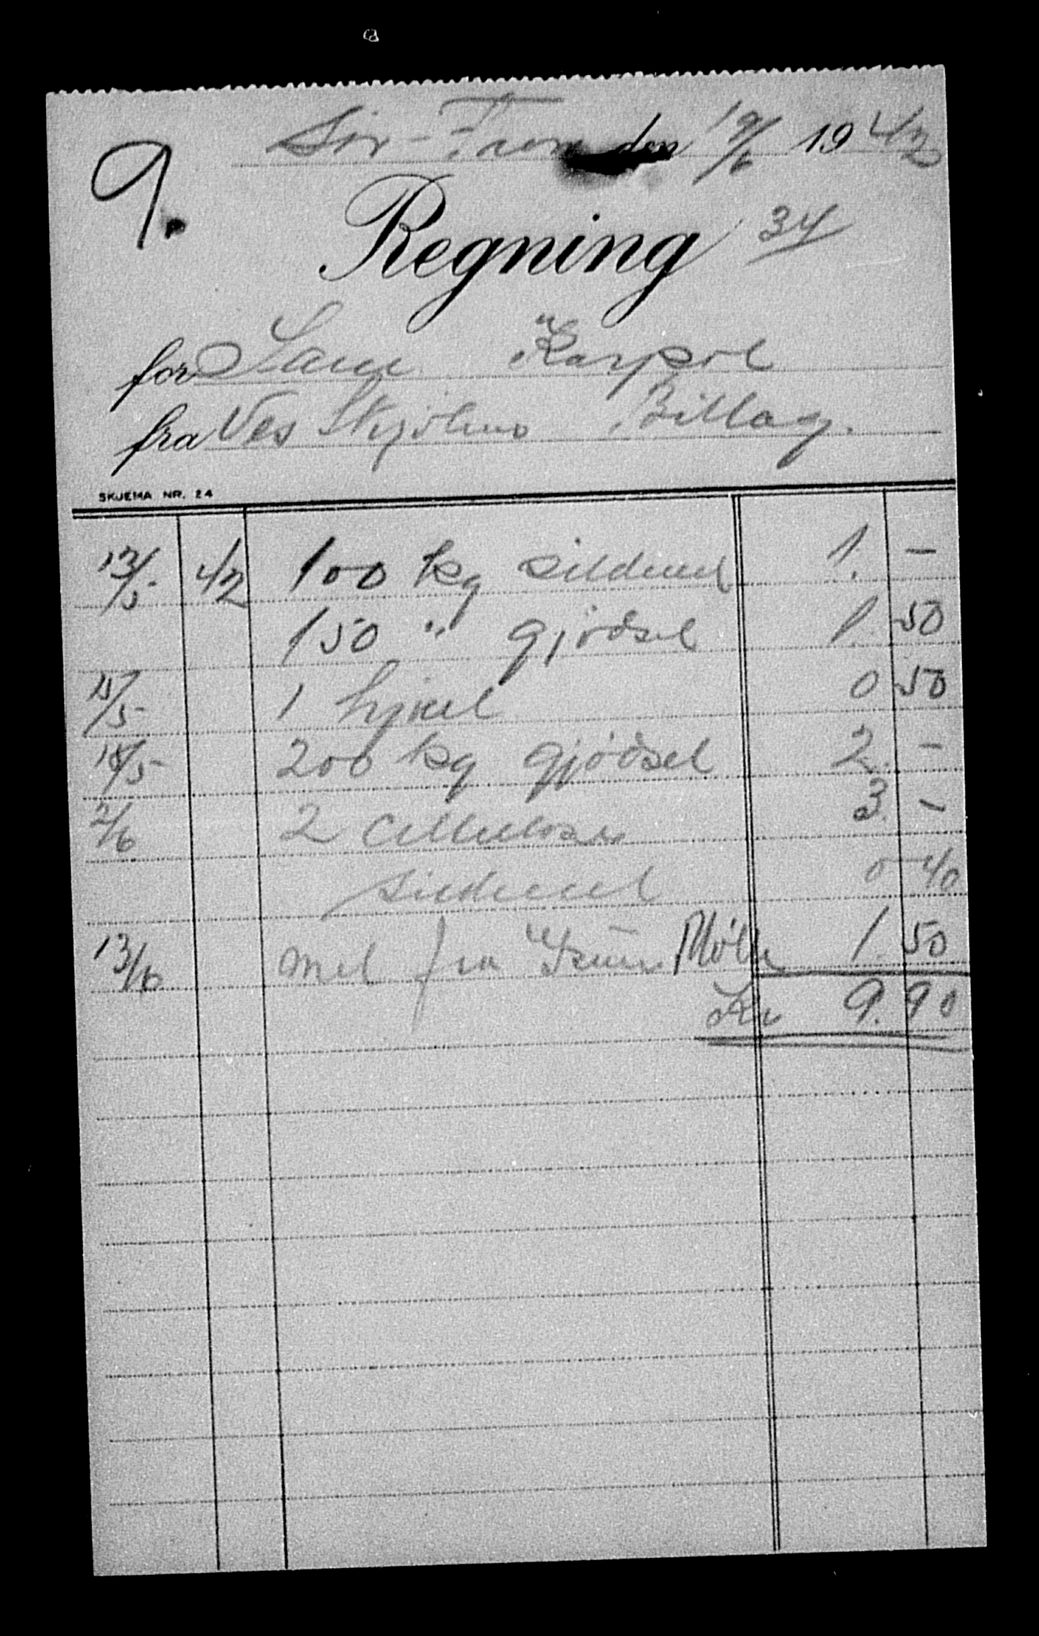 Sör-Fron den 19/6 1942
9.
Regning 34
for Karpol
fra Ves Billag.
SKJEMA NR. 24
12/5 42 100 kg sildmel 1. -
150 " gjödsel 1. 50
15/5 1 hjul 0 50
18/5 200 kg gjödsel 2 -
2/6 2 Cellulose 3. -
sildmel 0 40
13/6 mel fra Mölle 1. 50
Kr 9.90